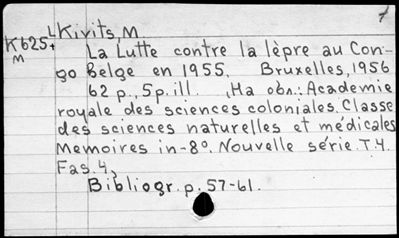 7
LKivits, M
K625+
M
La Lutte contre la lèpre au Con-
go Belge en 1955. Bruxelles, 1956
62 p., 5p. ill. , На обл.: Academie
royale des sciences coloniales. Classe
des sciences naturelles et médicales
Memoires in-8°. Nouvelle série. T.4.
Fas. 4,
Bibliogr. p. 57-61.